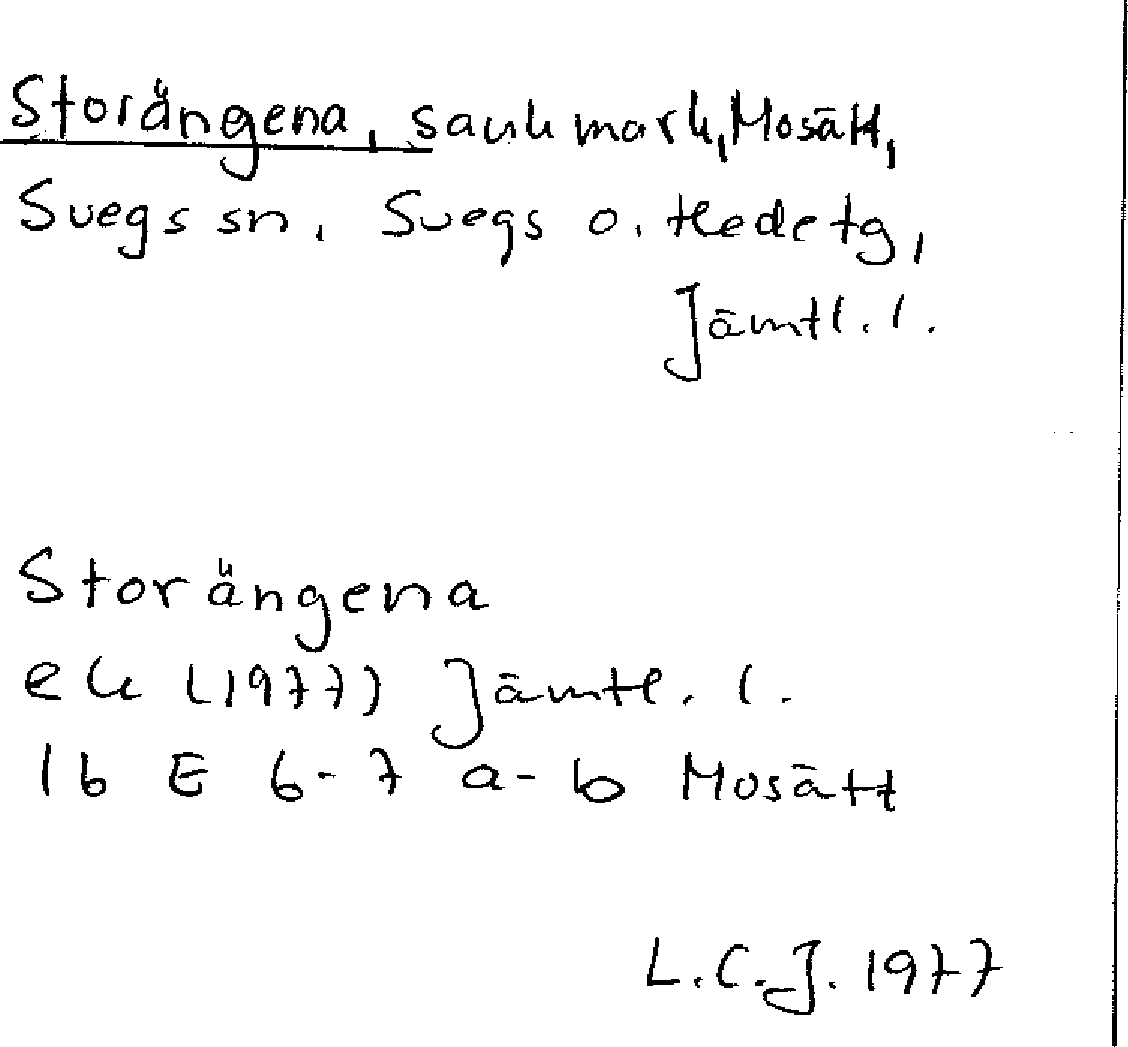 Storängena, sank mark, Mosätt,
Svegs sn, Svegs o. Hede tg,
Jämtl. l.
Storängena
ek (1977) Jämtl. l.
16 E 6-7 a-b Mosätt
L.C.J. 1977